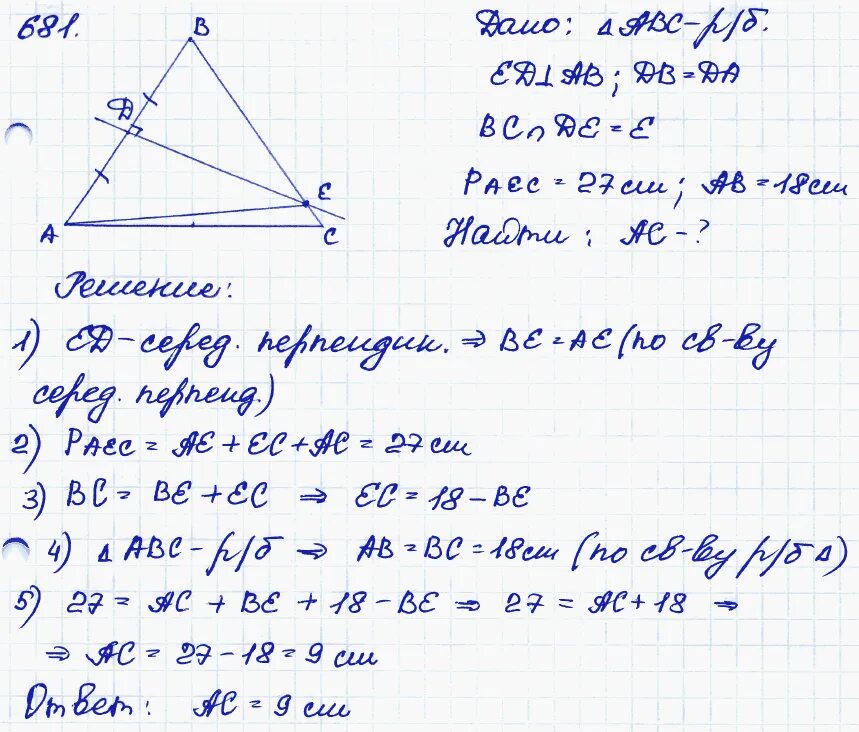 681.
B
D
E
A
C
Дано: △ABC - р/б.
ED⊥AB; DB=DA
BC∩DE=E
PAEC = 27 см; AB = 18 см
Найти: AC - ?
Решение:
1) ED - серед. перпендик. ⇒ BE = AE (по св-ву
серед. перпенд.)
2) PAEC = AE + EC + AC = 27 см
3) BC = BE + EC ⇒ EC = 18 - BE
4) △ABC - р/б ⇒ AB = BC = 18 см (по св-ву р/б △)
5) 27 = AC + BE + 18 - BE ⇒ 27 = AC + 18 ⇒
⇒ AC = 27 - 18 = 9 см
Ответ: AC = 9 см